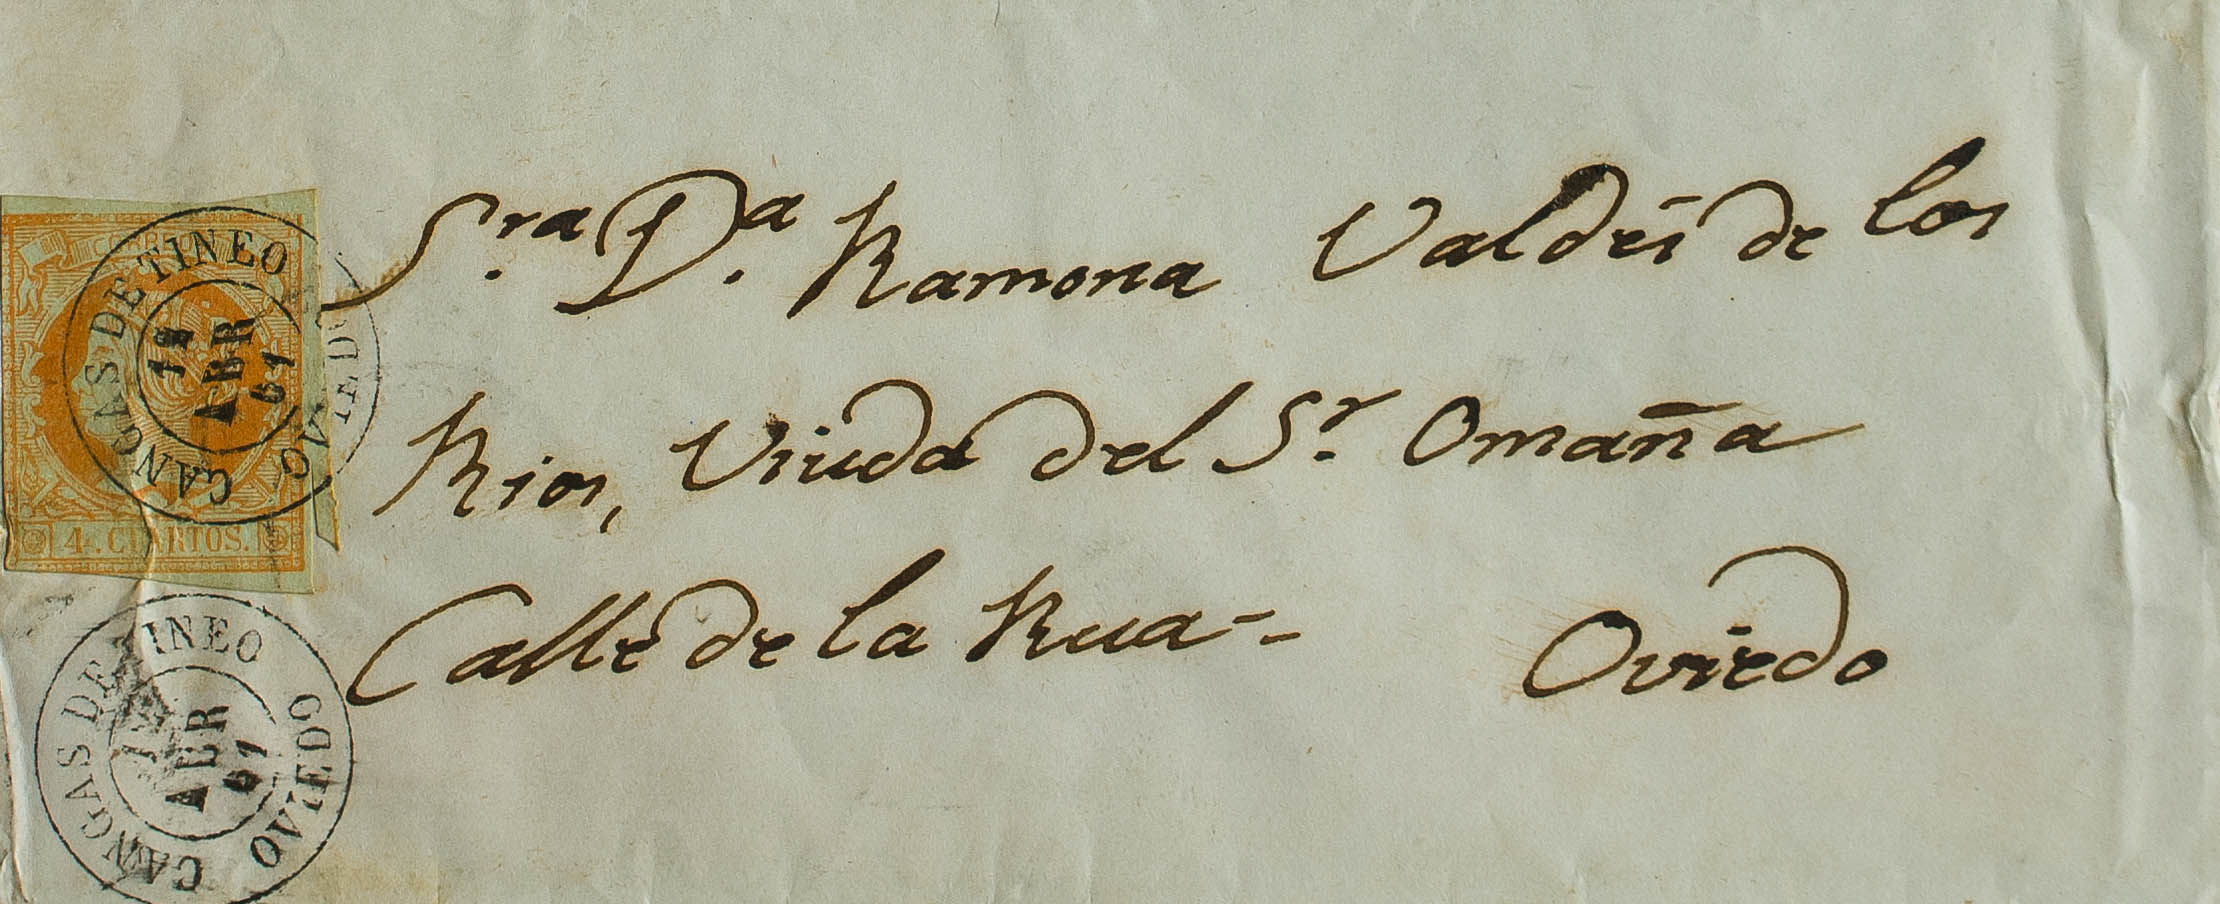 S.ra D.a Ramona Valdés de los
Rios, Viuda del S.r Omaña
Calle de la Rua--
Oviedo
CORREOS
4 CUARTOS.
CANGAS DE TINEO
ABR
61
CANGAS DE TINEO
ABR
61
OVIEDO